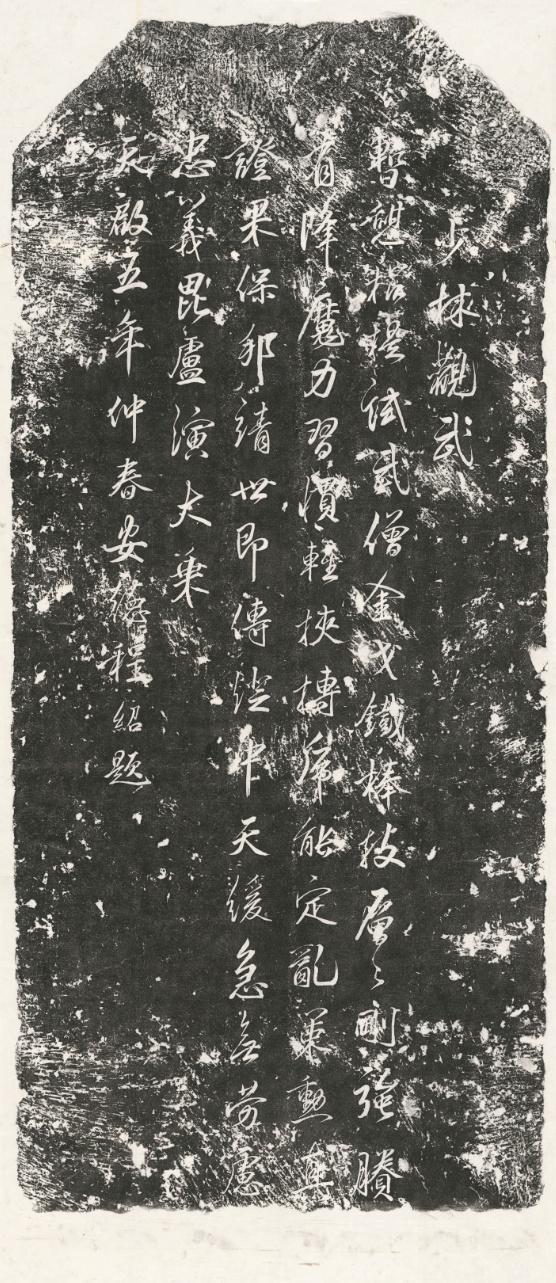 少林觀武
暫憩招提試武僧金戈鐵棒技層々剛強賸
有降魔力習慣輕捷搏虎能定亂策勳真
證果保邦靖世即傳燈中天緩急無勞慮
忠義毘盧演大乘
天啟五年仲春安德程紹題